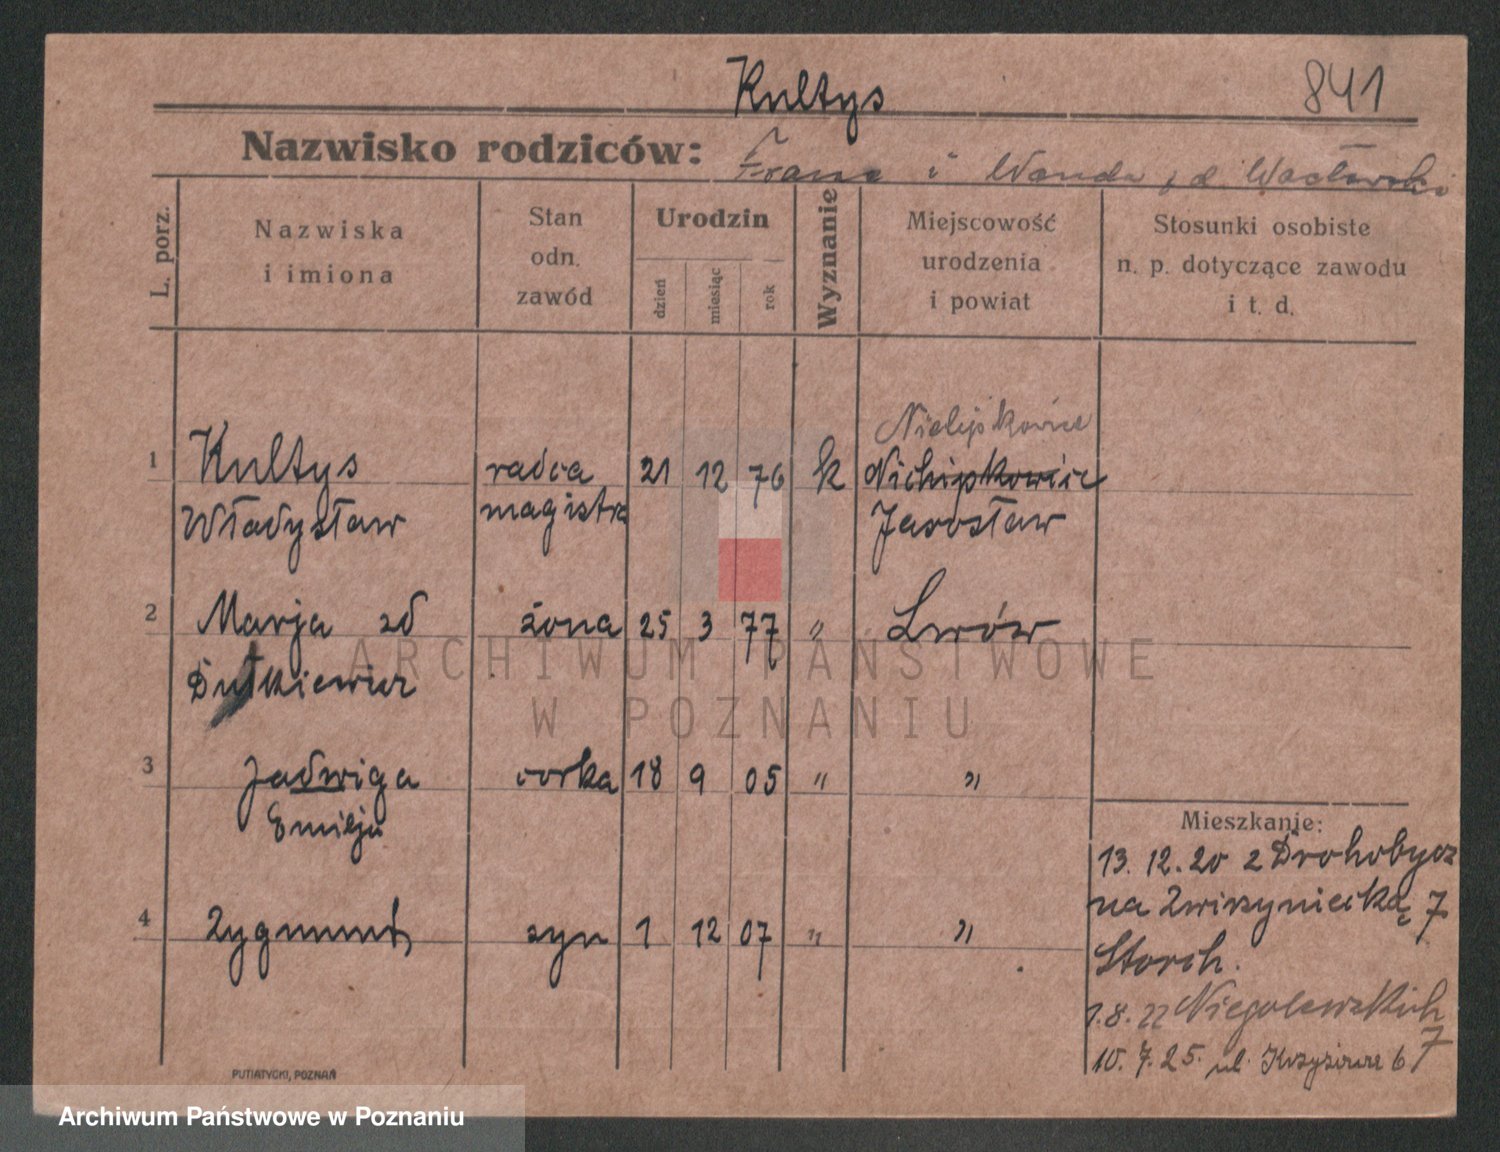 Kultys
841
Nazwisko rodziców: Franc i Wanda z d. Wacławski
L. porz.
Nazwiska
i imiona
Stan
odn.
zawód
Urodzin
dzień
miesiąc
rok
Wyznanie
Miejscowość
urodzenia
i powiat
Stosunki osobiste
n. p. dotyczące zawodu
i t. d.
Nielipkowice
1 Kultys radca 21 12 76 k Nichipkowice
Władysław magistra Jarosław
2 Marja zd żona 25 3 77 „ Lwów
Dutkiewicz
ARCHIWUM PAŃSTWOWE
W POZNANIU
3 Jadwiga córka 18 9 05 „ „
Emilja
4 Zygmunt syn 1 12 07 „ „
Mieszkanie:
13. 12. 20 z Drohobycz
na Zwierzyniecką 7
Storch.
1. 8. 22 Niegolewskich
7
10. 7. 25. ul. 6
PUTIATYCKI, POZNAŃ
Archiwum Państwowe w Poznaniu